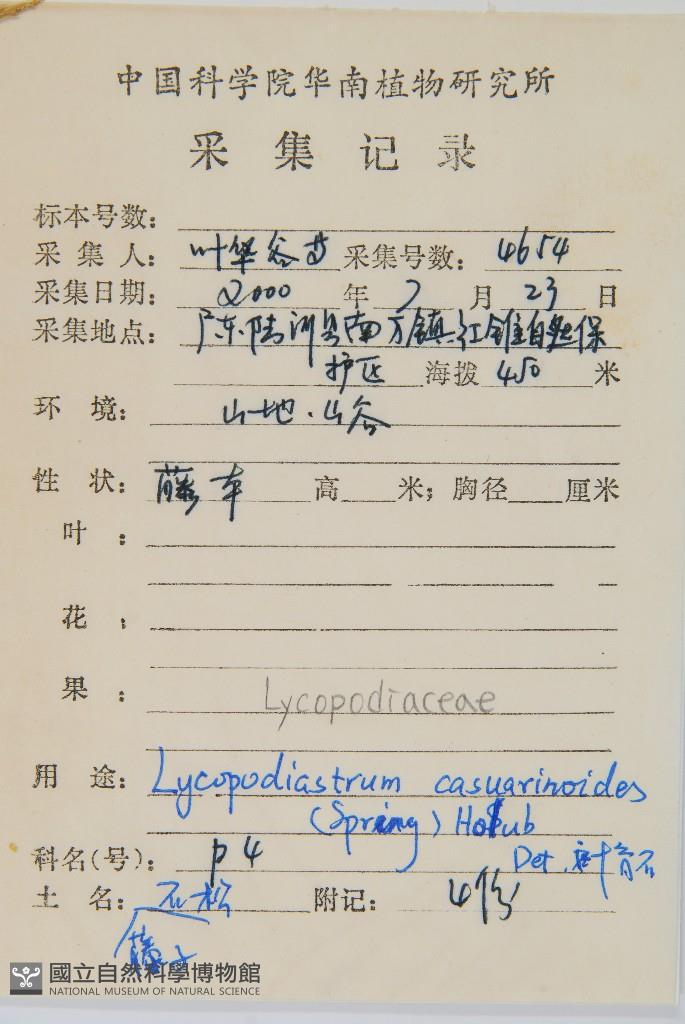 中国科学院华南植物研究所
采集记录
标本号数：
采集人： 叶华谷等 采集号数： 4654
采集日期： 2000 年 7 月 23 日
采集地点： 广东.陆河县南万镇.红锥自然保
护区 海拨 450 米
环境： 山地.山谷
性状： 藤本 高 米；胸径 厘米
叶：
花：
果： Lycopodiaceae
用途： Lycopodiastrum casuarinoides
(Spring) Holub
科名(号)： p4 Det. 叶育石
土名： 石松 附记： 4份
藤
國立自然科學博物館
NATIONAL MUSEUM OF NATURAL SCIENCE